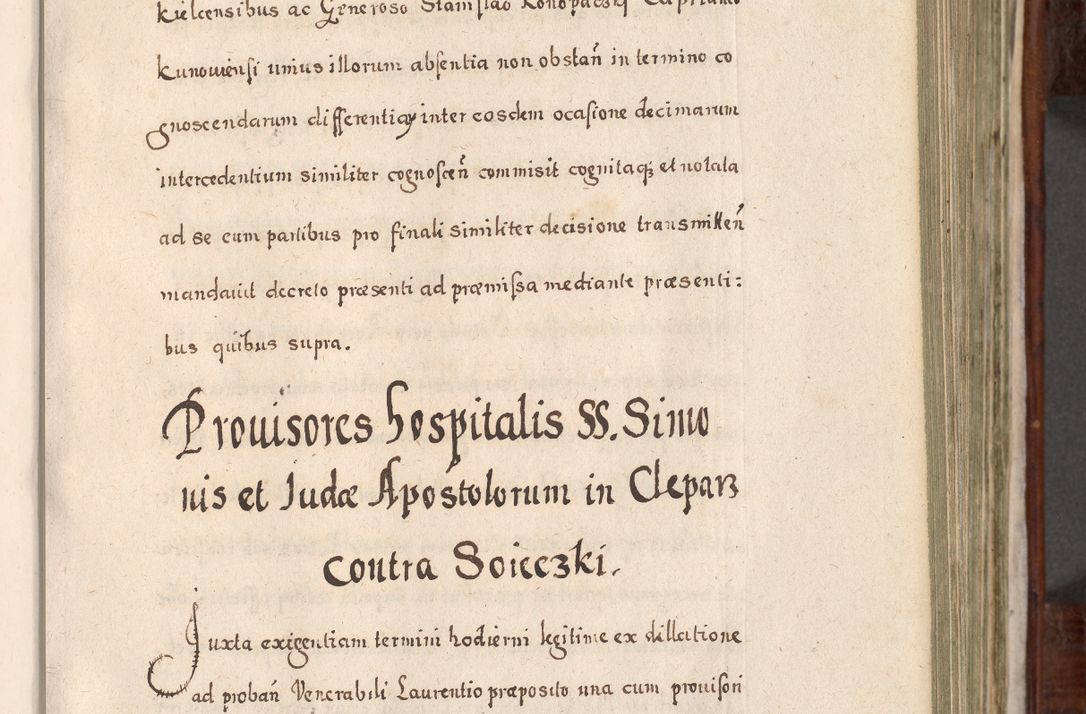 kielcensibus ac Generoso Stanislao Konopaczki Capitaneo
kunowiensi unius illorum absentia non obstañ in termino co
gnoscendarum differentiaʒ inter eosdem ocasione decimarum
intercedentium similiter cognosceñ commisit cognitaqʒ et notata
ad se cum partibus pro finali similiter decisione transmitteñ
mandavit decreto præsenti ad præmissa mediante præsenti:
bus quibus supra.
Prouisores hospitalis SS. Simo
nis et Judæ Apostolorum in Clepar3
contra Soieczki.
Juxta exigentiam termini hodierni legitime ex dillatione
ad probañ Venerabili Laurentio præposito una cum prouisori